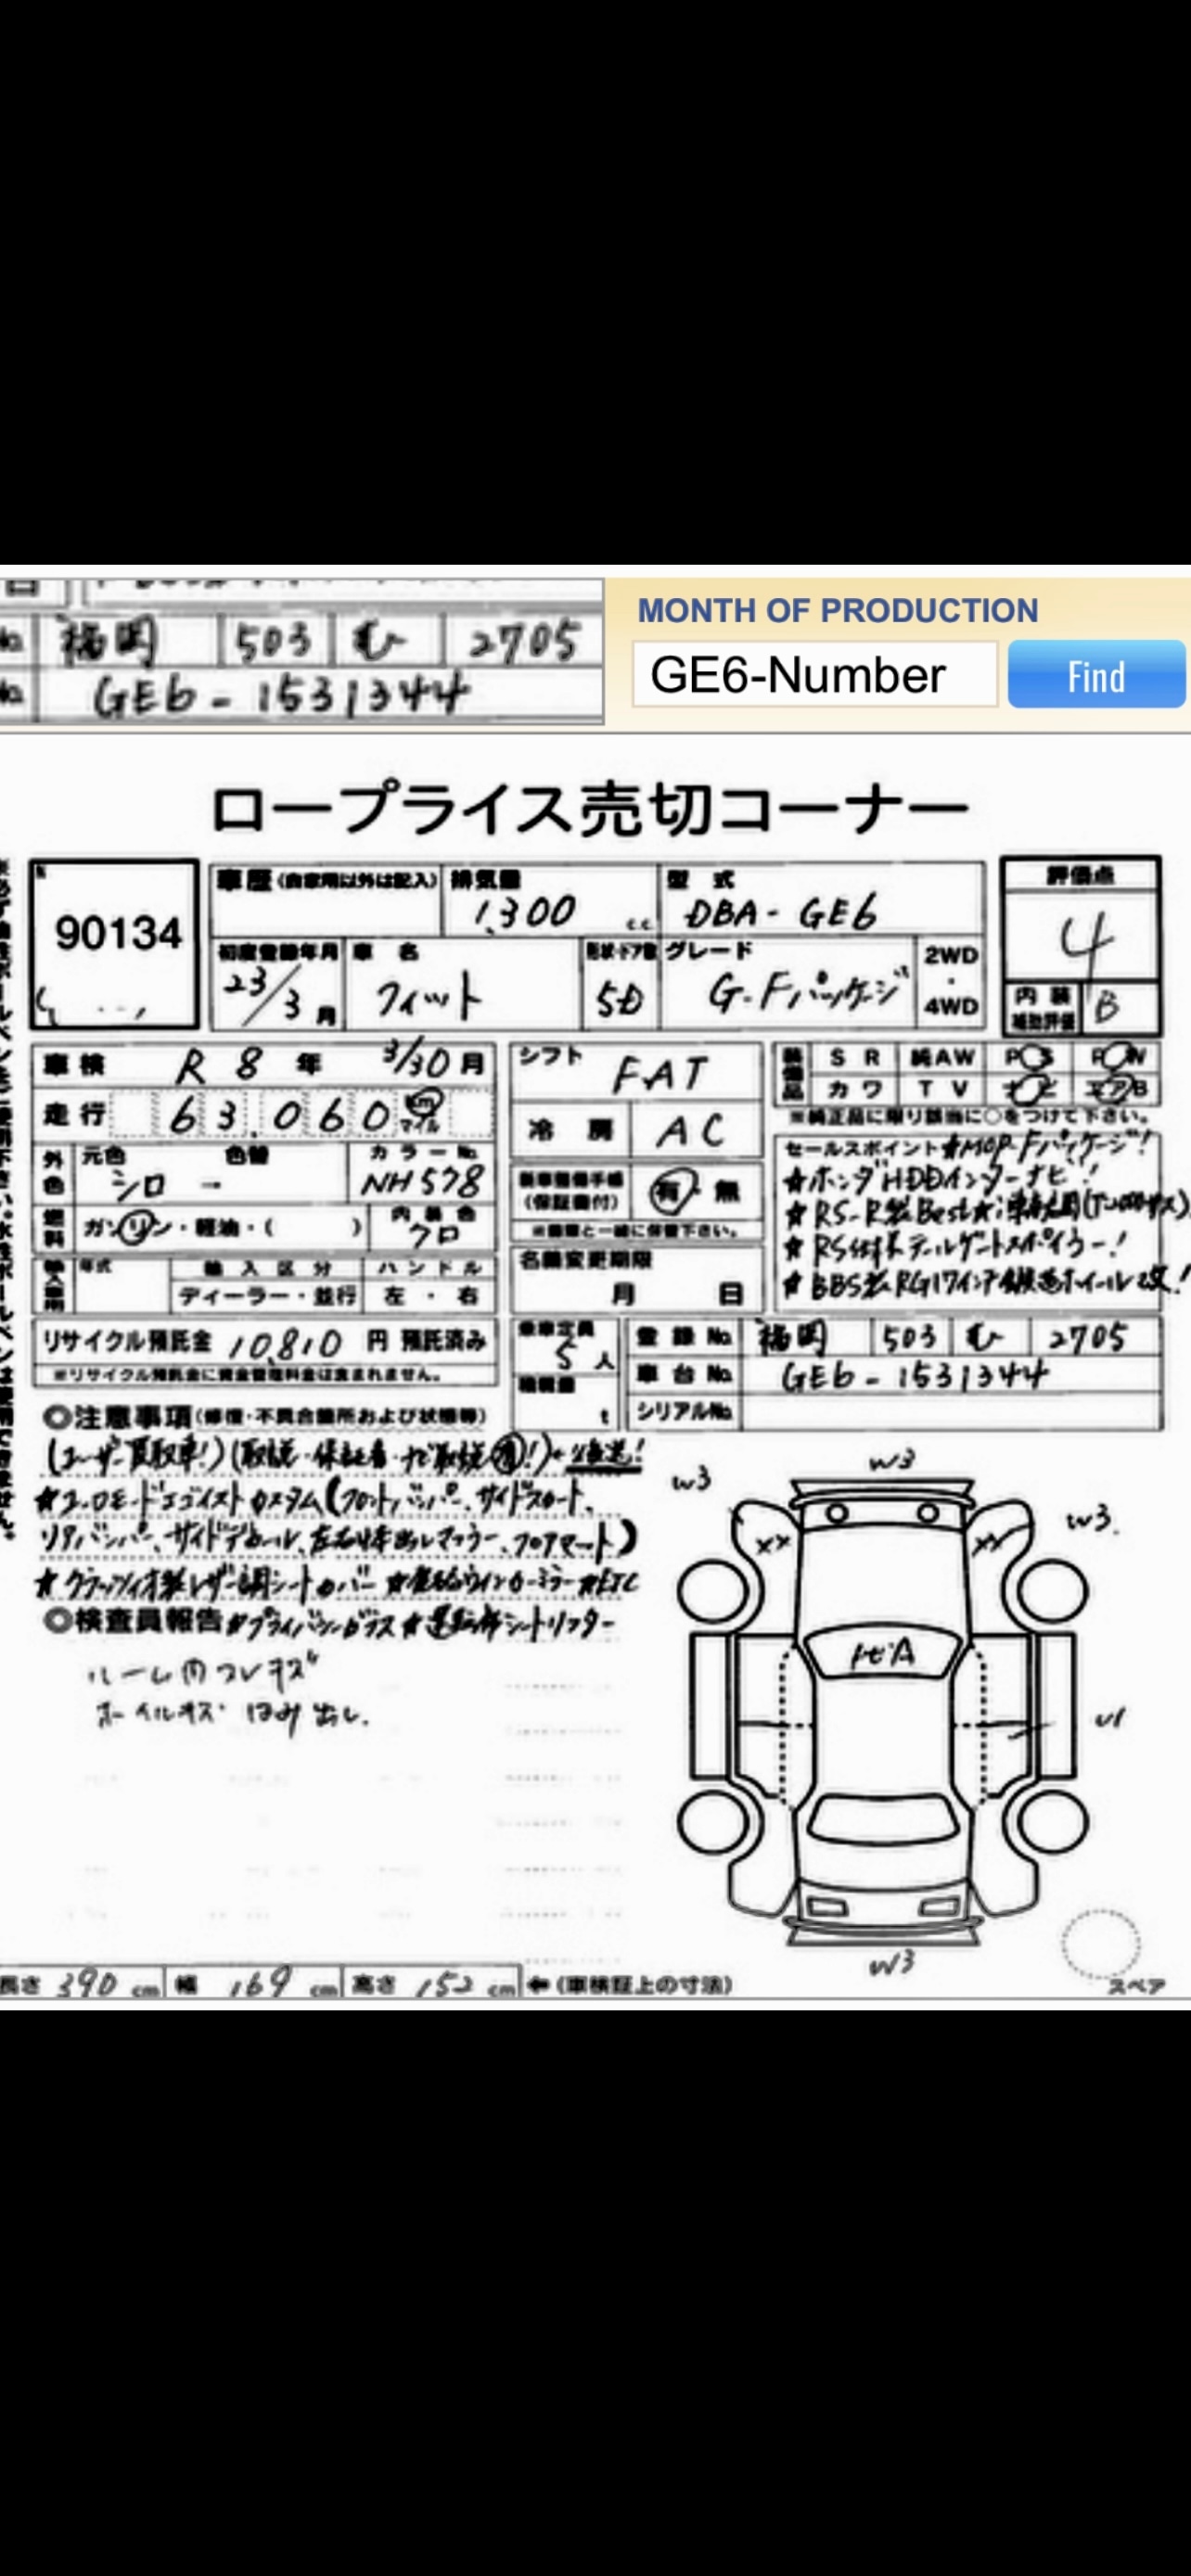 福岡 503 む 2705
GE6-1531344
MONTH OF PRODUCTION
GE6-Number
Find
ロープライス売切コーナー
90134
車歴(自家用以外は記入)
排気量 1,300 cc
型式 DBA-GE6
評価点 4
初度登録年月 23/3月
車名 フィット
形状・ドア数 5D
グレード G・Fパッケージ
2WD・4WD
内装補助評価 B
車検 R8年 3/30月
シフト FAT
装備品 SR 純AW PS PW
カワ TV ナビ エアB
走行 63,060 km マイル
※純正品に限り該当に○をつけて下さい。
冷房 AC
外色 元色 シロ → 色替 カラーNo. NH578
新車整備手帳(保証書付) 有・無
※書類と一緒に保管下さい。
燃料 ガソリン・軽油・( )
内装色 クロ
名義変更期限 月 日
輸入車用 年式 輸入区分 ハンドル
ディーラー・並行 左・右
セールスポイント ★MOP Fパッケージ!
★ホンダHDDインターナビ!
★RS-R製Best★i車高調
★RS仕様テールゲートスポイラー!
★BBS製RG17インチ鍛造ホイール
リサイクル預託金 10,810 円 預託済み
※リサイクル預託金に資金管理料金は含まれません。
乗車定員 5人
積載量 t
登録No. 福岡 503 む 2705
車台No. GE6-1531344
シリアルNo.
◎注意事項(修復・不具合箇所および状態等)
(ユーザー買取車!)(取説・保証書・ナビ取説有!)
★ユーロモードエゴイストカスタム(フロントバンパー、サイドスカート、
リアバンパー、サイドデカール、左右4本出しマフラー、フロアマート)
★クラッツィオ製レザー調シートカバー ★ウインカーミラー★ETC
◎検査員報告 ★プライバシーガラス★運転席シートリフター
ルーム内コレキズ
ホイルキズ・はみ出し.
w3
w3
w3.
xx
xx
トビA
U1
w3
スペア
長さ 390 cm 幅 169 cm 高さ 152 cm ←(車検証上の寸法)